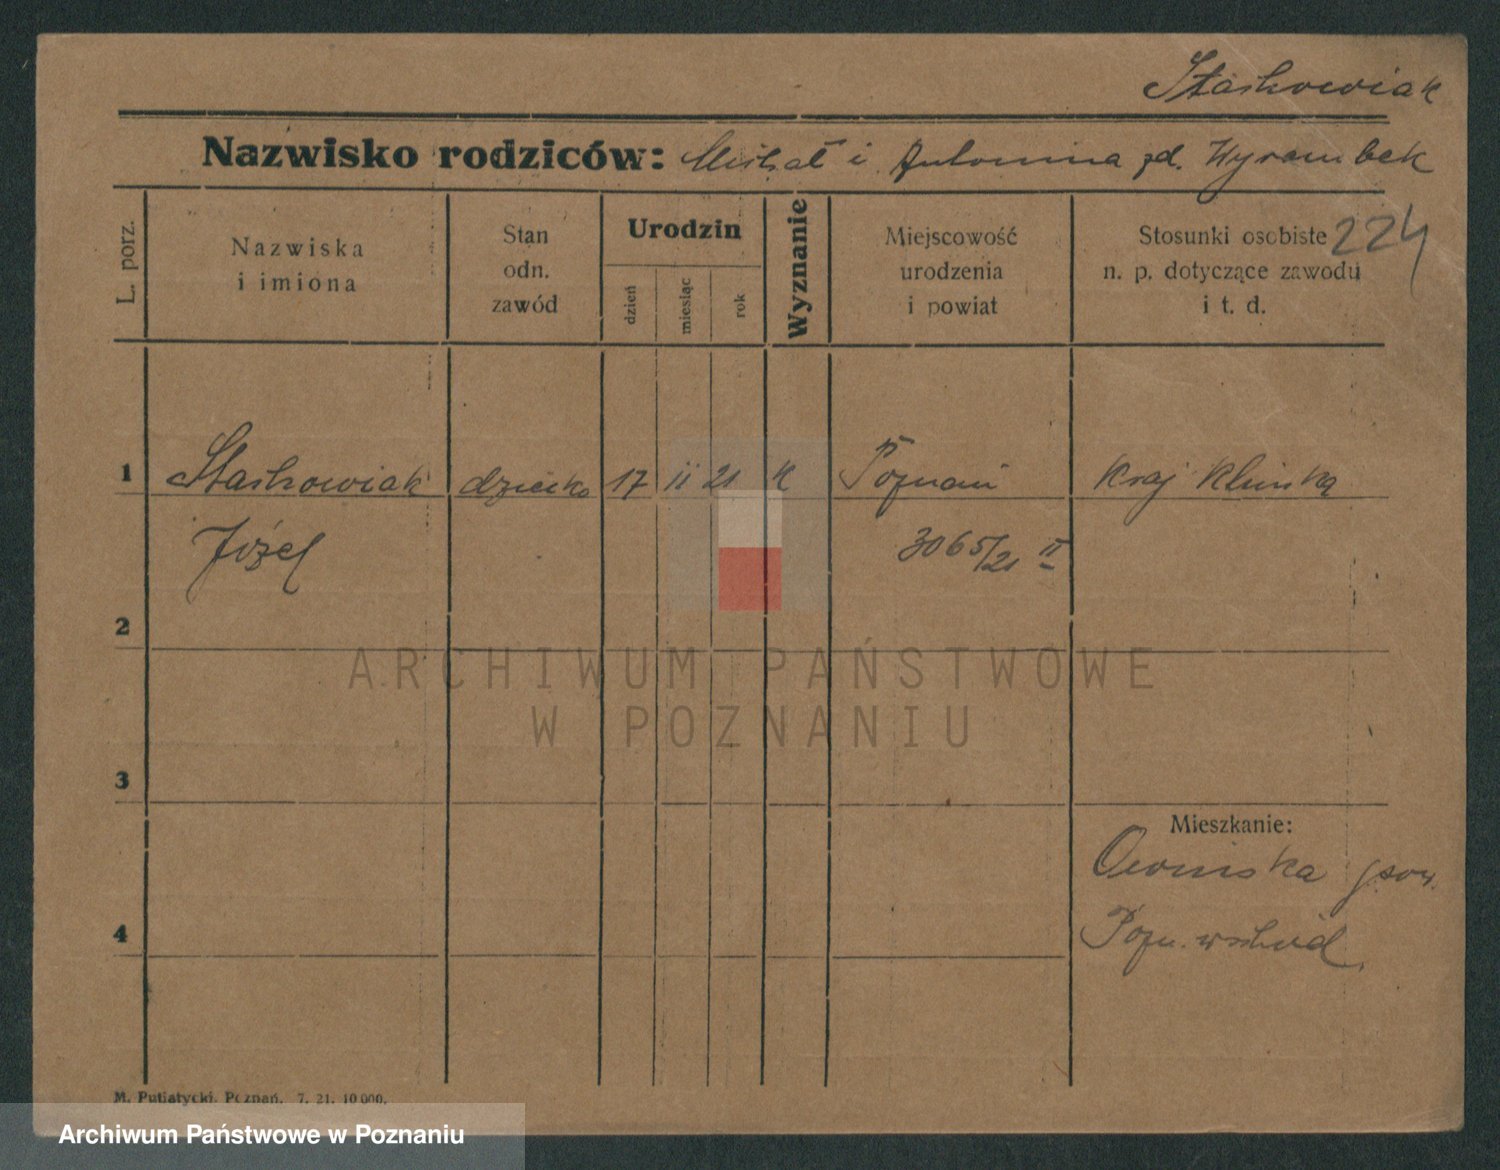 Staśkowiak
Nazwisko rodziców: Michał i Antonina zd. Wyrambek
L. porz.
Nazwiska
i imiona
Stan
odn.
zawód
Urodzin
dzień
miesiąc
rok
Wyznanie
Miejscowość
urodzenia
i powiat
Stosunki osobiste 224
n. p. dotyczące zawodu
i t. d.
1 Staśkowiak dziecko 17 II 21 k Poznań Kraj
Józef 3065/21 II
2
3
Mieszkanie:
Owińska pow.
4 Pozn. wschód
M. Putiatycki, Poznań. 7. 21. 10 000.
ARCHIWUM PAŃSTWOWE
W POZNANIU
Archiwum Państwowe w Poznaniu